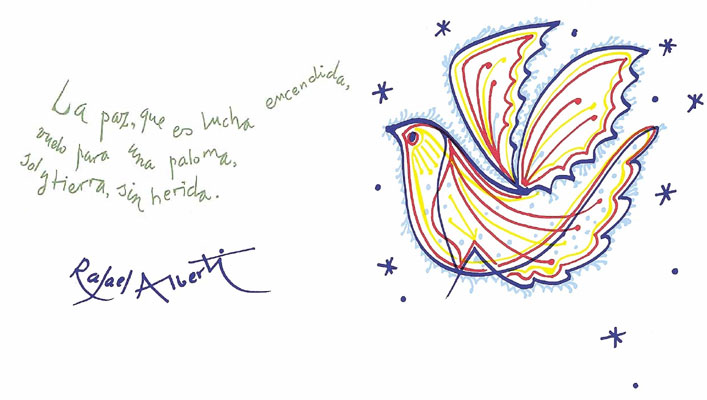 La paz, que es lucha encendida,
vuelo para una paloma,
sol y tierra, sin herida.
Rafael Alberti